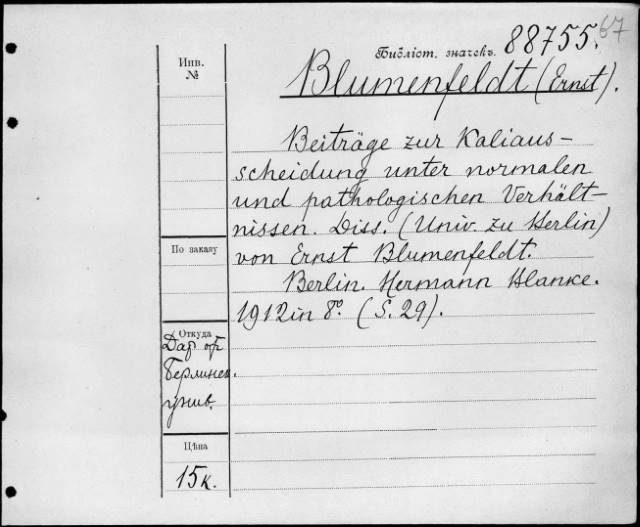 67
Библіот. значекъ. 88755.
Инв.
№
Blumenfeldt (Ernst).
Beiträge zur Kaliaus-
scheidung unter normalen
und pathologischen Verhält-
nissen. Diss. (Univ. zu Berlin)
По заказу
von Ernst Blumenfeldt.
Berlin. Hermann Blanke.
1912 in 8º. (S. 29).
Откуда
Дар от
Берлинск.
унив.
Цѣна
15 к.